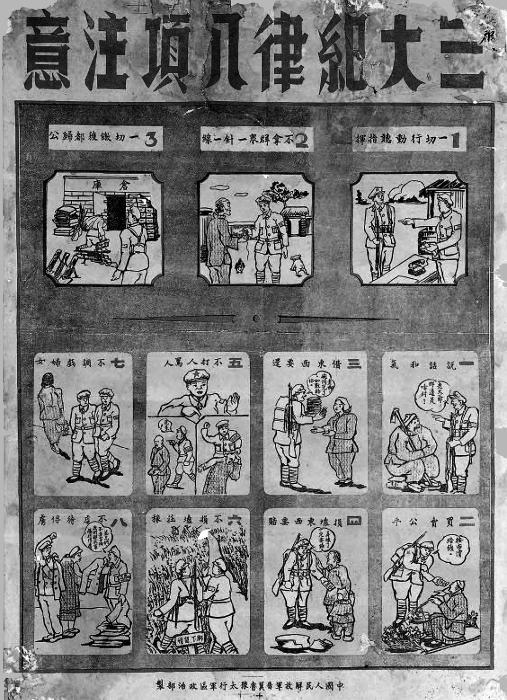 三大紀律八項注意
1 一切行動聽指揮
2 不拿群眾一針一線
3 一切繳獲都歸公
倉庫
一 說話和氣
二 買賣公平
三 借東西要還
四 損壞東西要賠
五 不打人罵人
六 不損壞莊稼
七 不調戲婦女
八 不虐待俘虜
中國人民解放軍晉冀魯豫太行軍區政治部製